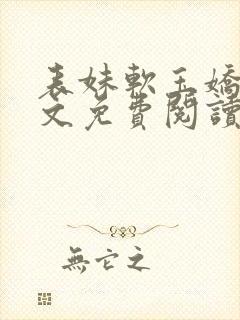 表妹軟玉嬌
文免費閱讀
無它之